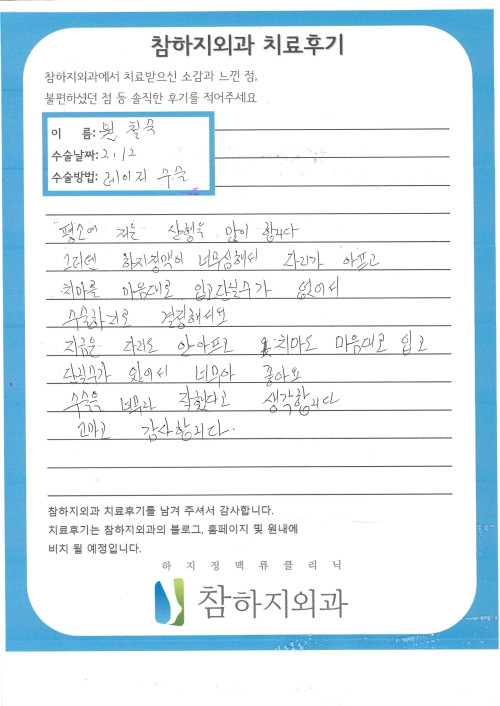 참하지외과 치료후기
참하지외과에서 치료받으신 소감과 느낀 점,
불편하셨던 점 등 솔직한 후기를 적어주세요
이 름: 철수
수술날짜: 2. 12
수술방법: 레이저 수술
평소에 저는 산행을 많이 합니다
그러던 하지정맥이 너무심해서 다리가 아프고
치마를 마음대로 입고다닐수가 없어서
수술하기로 결정해서요
지금은 다리도 안아프고 치마도 마음대로 입고
다닐수가 있어서 너무나 좋아요
수술을 너무나 잘했다고 생각합니다
고마고 감사합니다.
참하지외과 치료후기를 남겨 주셔서 감사합니다.
치료후기는 참하지외과의 블로그, 홈페이지 및 원내에
비치 될 예정입니다.
하지정맥류클리닉
참하지외과